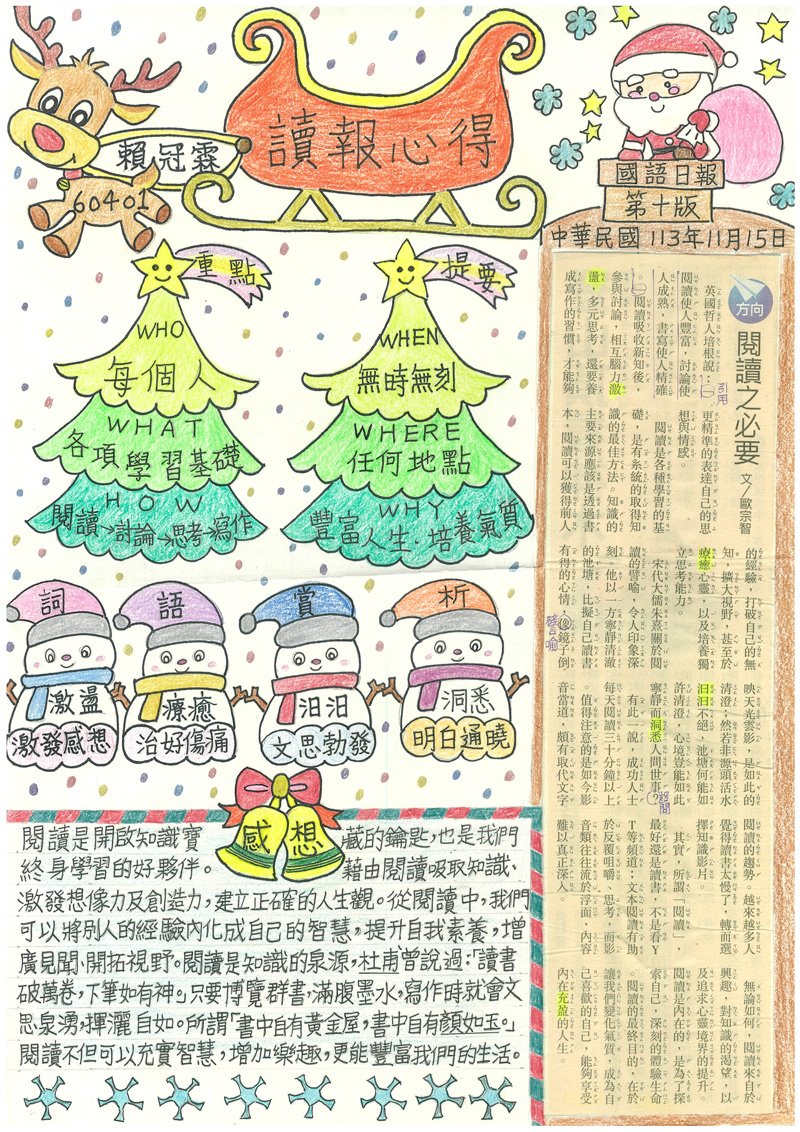 賴冠霖
60401
讀報心得
國語日報
第十版
中華民國 113年11月15日
重點
WHO
每個人
WHAT
各項學習基礎
HOW
閱讀→討論→思考→寫作
提要
WHEN
無時無刻
WHERE
任何地點
WHY
豐富人生.培養氣質
詞
語
賞
析
激盪
激發感想
療癒
治好傷痛
汩汩
文思勃發
洞悉
明白通曉
感想
閱讀是開啟知識寶藏的鑰匙,也是我們
終身學習的好夥伴。藉由閱讀吸取知識、
激發想像力及創造力,建立正確的人生觀。從閱讀中,我們
可以將別人的經驗內化成自己的智慧,提升自我素養,增
廣見聞、開拓視野。閱讀是知識的泉源,杜甫曾說過:「讀書
破萬卷,下筆如有神。」只要博覽群書,滿腹墨水,寫作時就會文
思泉湧,揮灑自如。所謂「書中自有黃金屋,書中自有顏如玉。」
閱讀不但可以充實智慧,增加樂趣,更能豐富我們的生活。
方向
閱讀之必要
文/歐宗智
英國哲人培根說:
閱讀使人豐富,討論使
人成熟,書寫使人精確
。閱讀吸收新知後,
參與討論,相互腦力激
盪,多元思考,還要養
成寫作的習慣,才能夠
引用
更精準的表達自己的思
想與情感。
閱讀是各種學習的基
礎,是有系統的取得知
識的最佳方法。知識的
主要來源應該是透過書
本,閱讀可以獲得前人
的經驗,打破自己的無
知,擴大視野,甚至於
療癒心靈,以及培養獨
立思考能力。
宋代大儒朱熹關於閱
讀的譬喻,令人印象深
刻。他以一方寧靜清澈
的池塘,比擬自己讀書
有得的心情,鏡子倒
映天光雲影,是如此的
清澄;然若非源頭活水
汩汩不絕,池塘何能如
許清澄,心境豈能如此
寧靜而洞悉人間世事?
設問
有此一說,成功人士
每天閱讀三十分鐘以上
。值得注意的是如今影
音當道,頗有取代文字
閱讀的趨勢。越來越多人
覺得讀書太慢了,轉而選
擇知識影片。
其實,所謂「閱讀」,
最好還是讀書,不是看Y
T等頻道;文本閱讀有助
於反覆咀嚼、思考,而影
音類往往流於浮面,內容
難以真正深入。
無論如何,閱讀來自於
興趣,對知識的渴望,以
及追求心靈境界的提升。
閱讀是內在的,是為了探
索自己,深刻的體驗生命
。閱讀的最終目的,在於
讓我們變化氣質,成為自
己喜歡的自己,能夠享受
內在充盈的人生。